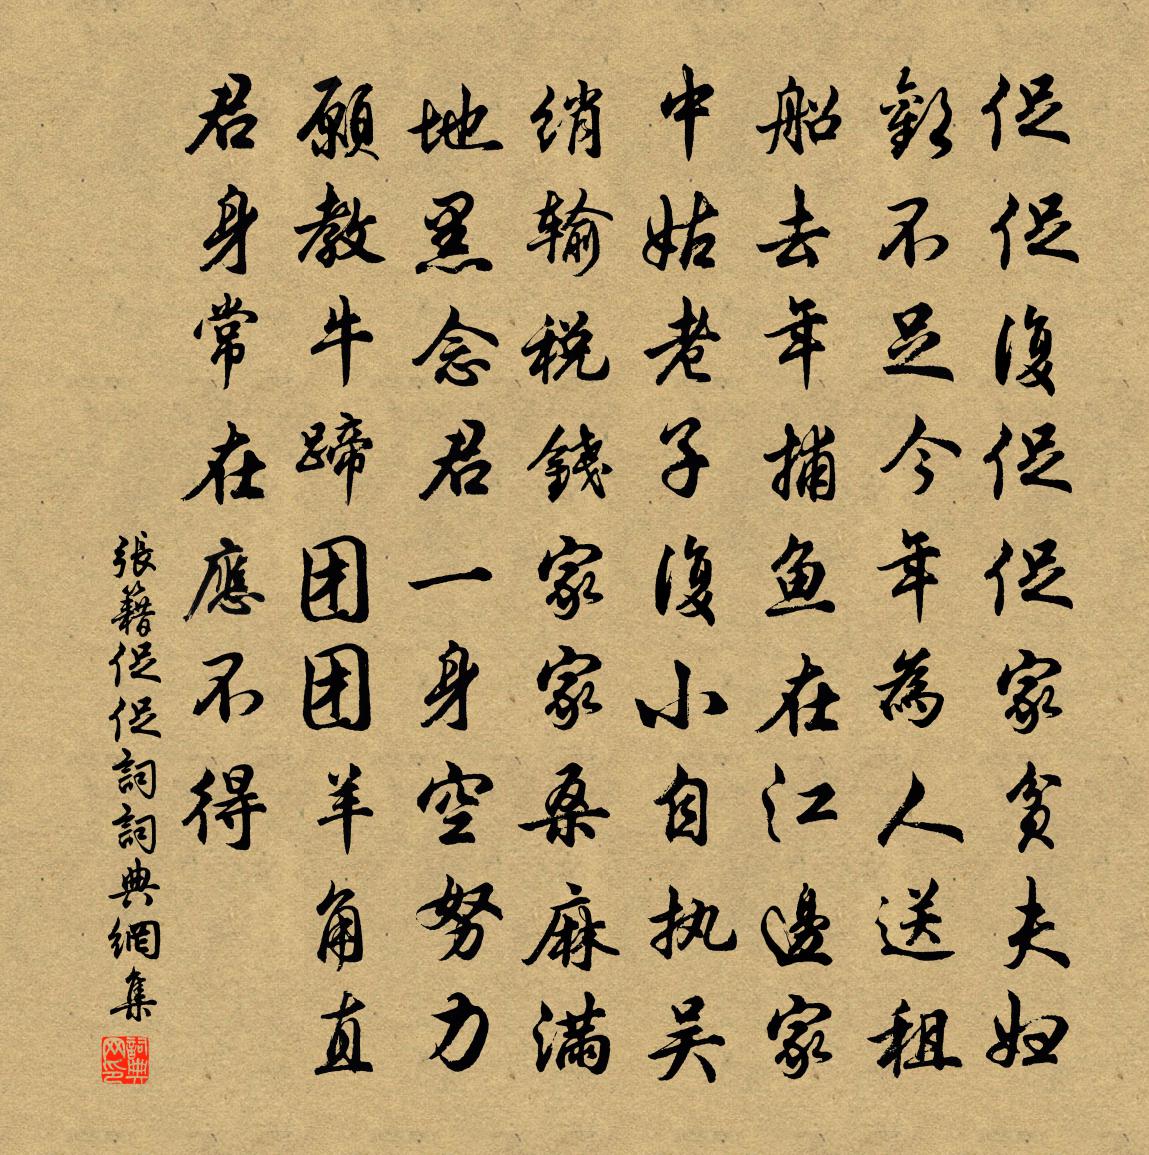 促促復促促家贫夫妇
歡不足今年為人送租
船去年捕鱼在江邊家
中姑老子復小自执吴
绡输税錢家家桑麻满
地黑念君一身空努力
願教牛蹄团团羊角直
君身常在應不得
張籍促促詞詞典網集
詞典网印